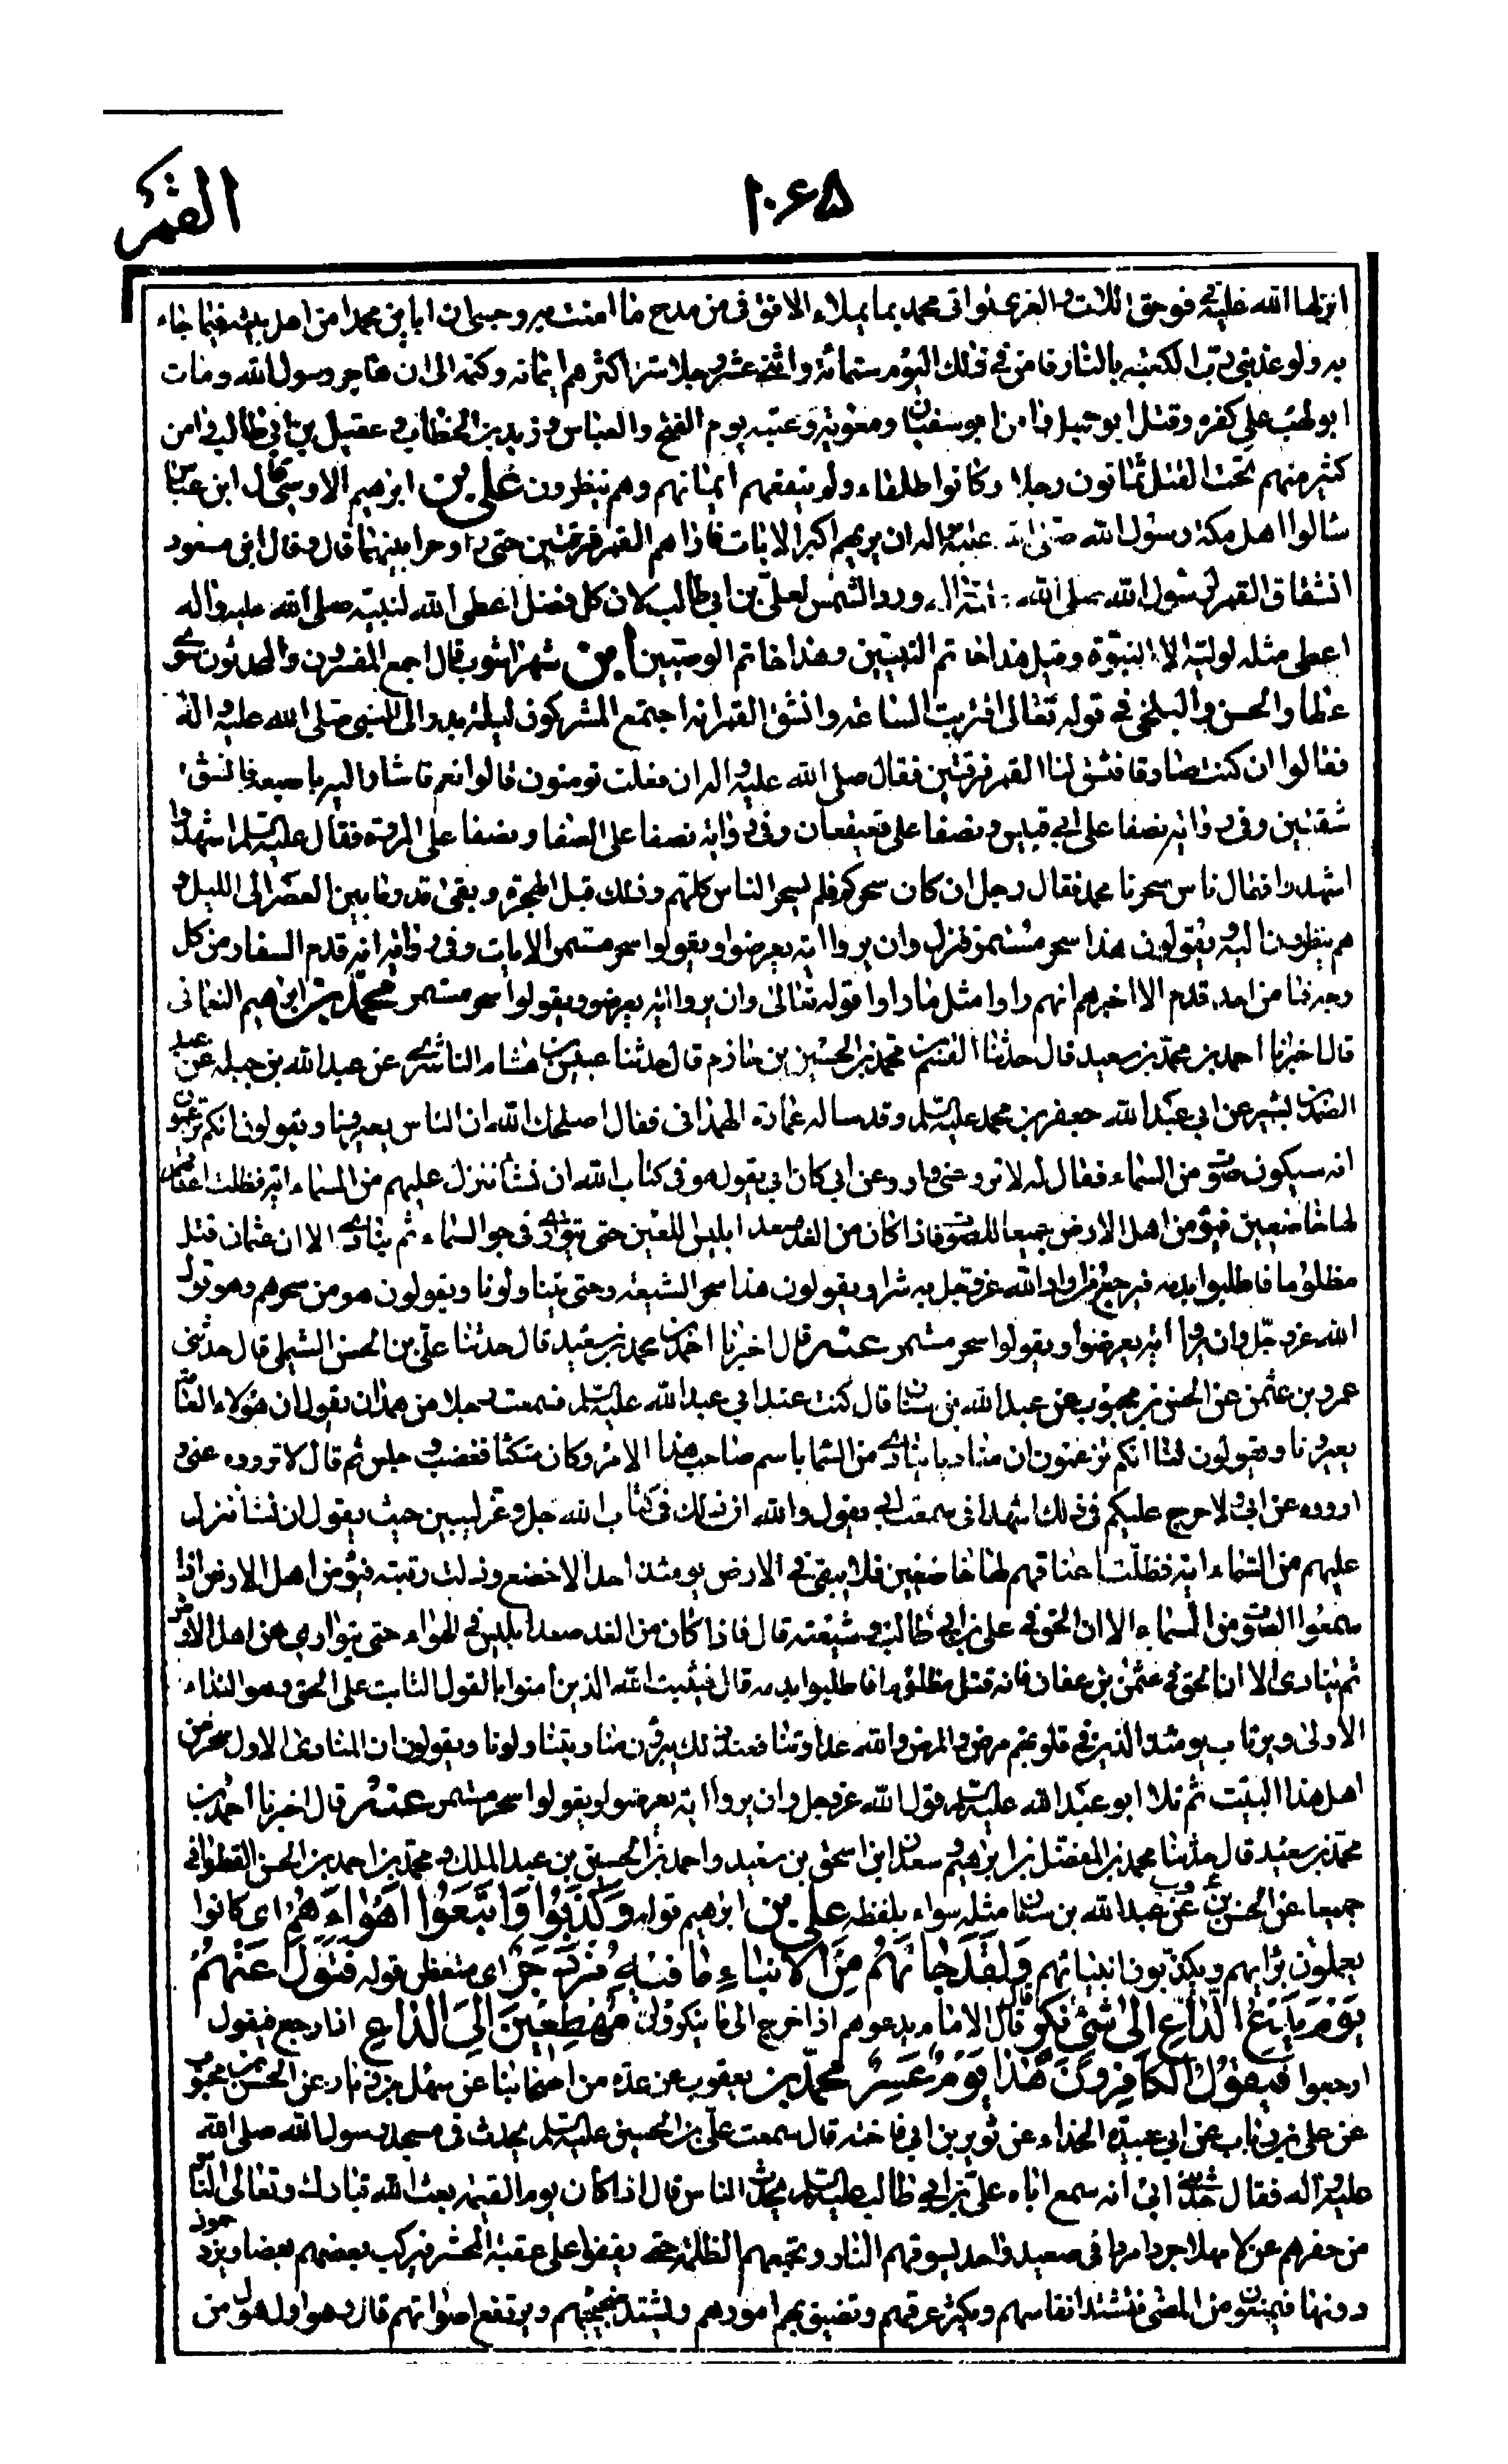 القمر
١٠۶۵
انزلها الله عليه فوحق اللات والعزى لو اتى محمد بما يملاء الافق في من مدح ما امنت به وحسبي ان اباين محمدا من اهل بيته فيما جاء
به ولو عذبني رب الكعبة بالنار فامن في ذلك اليوم ستمائة واثنى عشر رجلا ستر اكثرهم ايمانه وكتمه الى ان هاجر رسول الله ومات
ابو لهب على كفره وقتل ابو جهل وامن ابو سفيان ومعوية وعتبه يوم الفتح والعباس وزيد بن الخطاب وعقيل بن ابي طالب وامن
كثير منهم تحت القتل ثمانون رجلا وكانوا طلقاء ولم ينفعهم ايمانهم وهم ينظرون علي بن ابرهيم الاوسي قال ابن عباس
سالوا اهل مكة رسول الله صلى الله عليه واله ان يريهم اكبر الايات فاراهم القمر فرقتين حتى راوا حرا بينهما قال وقال ابن مسعود
انشقاق القمر لرسول الله صلى الله ورد الشمس لعلي بن ابي طالب لان كل فضل اعطى الله لنبيه صلى الله عليه واله
اعطى مثله لوليه الا النبوة وقيل هذا خاتم النبيين وهذا خاتم الوصيين ابن شهراشوب قال اجمع المفسرون والمحدثون سوى
عطا والحسن والبلخي في قوله تعالى اقتربت الساعة وانشق القمر انه اجتمع المشركون ليلة بدر الى النبي صلى الله عليه واله
فقالوا ان كنت صادقا فشق لنا القمر فرقتين فقال صلى الله عليه واله ان فعلت تومنون قالوا نعم فاشار اليه باصبعه فانشق
شقتين وفي رواية نصفا على ابي قبيس ونصفا على قعيقعان وفي رواية نصفا على الصفا ونصفا على المروة فقال عليه السلم اشهدوا
اشهدوا فقال ناس سحرنا محمد فقال رجل ان كان سحركم فلم يسحر الناس كلهم وذلك قبل الهجرة وبقى قدر ما بين العصر الى الليل و
هم ينظرون اليه ويقولون هذا سحر مستمر فنزل وان يروا اية يعرضوا ويقولوا سحر مستمر الايات وفي رواية انه قدم السفار من كل
وجه فما من احد قدم الا اخبرهم انهم راوا مثل ما راوا قوله تعالى وان يروا اية يعرضوا ويقولوا سحر مستمر محمد بن ابراهيم النعماني
قال اخبرنا احمد بن محمد بن سعيد قال حدثنا القسم بن محمد بن الحسين بن حازم قال حدثنا عبيس بن هشام الناشرى عن عبد الله بن جبله عن عبد
الصمد بن بشير عن ابي عبد الله جعفر بن محمد عليه السلم وقد ساله عمارة الهمداني فقال اصلحك الله ان الناس يعيرونا ويقولون انكم تزعمون
انه سيكون صوت من السماء فقال له لا تروعني واروه عن ابي كان ابي يقول هو في كتاب الله ان نشأ ننزل عليهم من السماء اية فظلت اعناقهم
لها خاضعين فيؤمن اهل الارض جميعا للصوت فاذا كان من الغد صعد ابليس اللعين حتى يتوارى في جو السماء ثم ينادى الا ان عثمان قتل
مظلوما فاطلبوا بدمه فيرجع من اراد الله عز وجل به شرا ويقولون هذا سحر الشيعة وحتى يتناولونا ويقولون هو من سحرهم وهو قول
الله عز وجل وان يروا اية يعرضوا ويقولوا سحر مستمر عنه قال اخبرنا احمد بن محمد بن سعيد قال حدثنا علي بن الحسن التيملي قال حدثني
عمرو بن عثمن عن الحسن بن محبوب عن عبد الله بن سنان قال كنت عند ابي عبد الله عليه السلم فسمعت رجلا من همدان يقول ان هؤلاء العامة
يعيرونا ويقولون لنا انكم تزعمون ان مناديا ينادى من السما باسم صاحب هذا الامر وكان متكئا فغضب وجلس ثم قال لا ترووه عني و
ارووه عن ابي ولا حرج عليكم في ذلك اشهد اني سمعت ابي يقول والله ان ذلك في كتاب الله جل وعز لبين حيث يقول ان نشأ ننزل
عليهم من السماء اية فظلت اعناقهم لها خاضعين فلا يبقى في الارض يومئذ احد الا خضع وذلت رقبته فيؤمن اهل الارض اذا
سمعوا الصوت من السماء الا ان الحق في علي بن ابي طالب وشيعته قال فاذا كان من الغد صعد ابليس في الهواء حتى يتوارى عن اهل الارض
ثم ينادى الا ان الحق في عثمن بن عفان فانه قتل مظلوما فاطلبوا بدمه قال فيثبت الله الذين امنوا بالقول الثابت على الحق وهو النداء
الاولى ويرتاب يومئذ الذين في قلوبهم مرض والمرض والله عداوتنا فعند ذلك يبرؤن منا ويتناولونا ويقولون ان المنادى الاول سحر من
اهل هذا البيت ثم تلا ابو عبد الله عليه السلم قول الله عز وجل وان يروا اية يعرضوا ويقولوا سحر مستمر عنه قال اخبرنا احمد بن
محمد بن سعيد قال حدثنا محمد بن المفضل بن ابرهيم وسعدان ابن اسحق بن سعيد واحمد بن الحسين بن عبد الملك ومحمد بن احمد بن الحسن القطواني
جميعا عن الحسن بن محبوب عن عبد الله بن سنان مثله سواء بلفظه علي بن ابرهيم قوله وَكَذَّبُوا وَاتَّبَعُوا اَهْوَاءَهُمْ اى كانوا
يعملون برايهم ويكذبون انبيائهم وَلَقَدْ جَاءَهُمْ مِنَ الْاَنْبَاءِ مَا فِيهِ مُزْدَجَرٌ اى متعظ قوله فَتَوَلَّ عَنْهُمْ
يَوْمَ يَدْعُ الدَّاعِ اِلَى شَىْءٍ نُكُرٍ قال الامام يدعوهم اذا خرج الى ما ينكرون مُهْطِعِينَ اِلَى الدَّاعِ اذا رجع فيقول
ارجعوا فَيَقُولُ الْكَافِرُونَ هَذَا يَوْمٌ عَسِرٌ محمد بن يعقوب عن عدة من اصحابنا عن سهل بن زياد عن الحسن بن محبوب
عن علي بن رياب عن ابي عبيدة الحذاء عن ثوير بن ابي فاخته قال سمعت علي بن الحسين عليه السلم يحدث في مسجد رسول الله صلى الله
عليه واله فقال حدثني ابي انه سمع اباه علي بن ابي طالب عليه السلم يحدث الناس قال اذا كان يوم القيمة بعث الله تبارك وتعالى الناس
من حفرهم عزلا مهلا جردا مردا في صعيد واحد يسوقهم النار وتجمعهم الظلمة حتى يقفوا على عقبة المحشر فيركب بعضهم بعضا ويزدحمون
دونها فيمنعون من المضى فتشتد انفاسهم ويكثر عرقهم وتضيق بهم امورهم ويشتد ضجيجهم ويرتفع اصواتهم قال وهو اول هول من